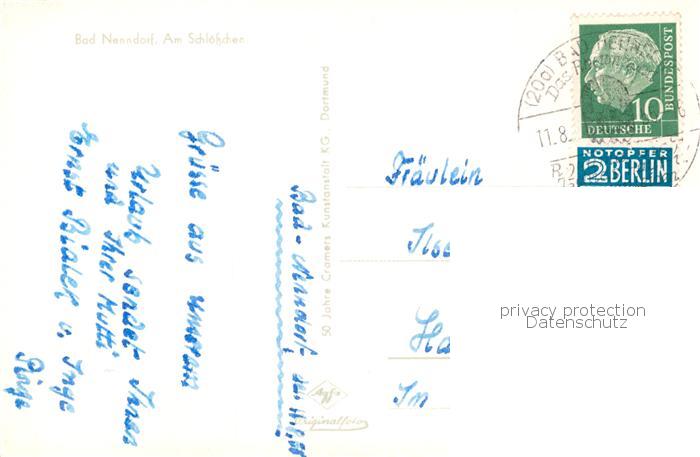 Bad Nenndorf, Am Schlößchen
Bad-Nenndorf, den
Grüsse aus unserem
Urlaub sendet Ihnen
und Ihrer Mutti
Inge
50 Jahre Cramers Kunstanstalt KG, Dortmund
Agfa
Originalfoto
(20a) BAD NENN
Das
11.8.
10
DEUTSCHE
BUNDESPOST
NOTOPFER
2 BERLIN
Fräulein
Ilse
Ha
Im
privacy protection
Datenschutz